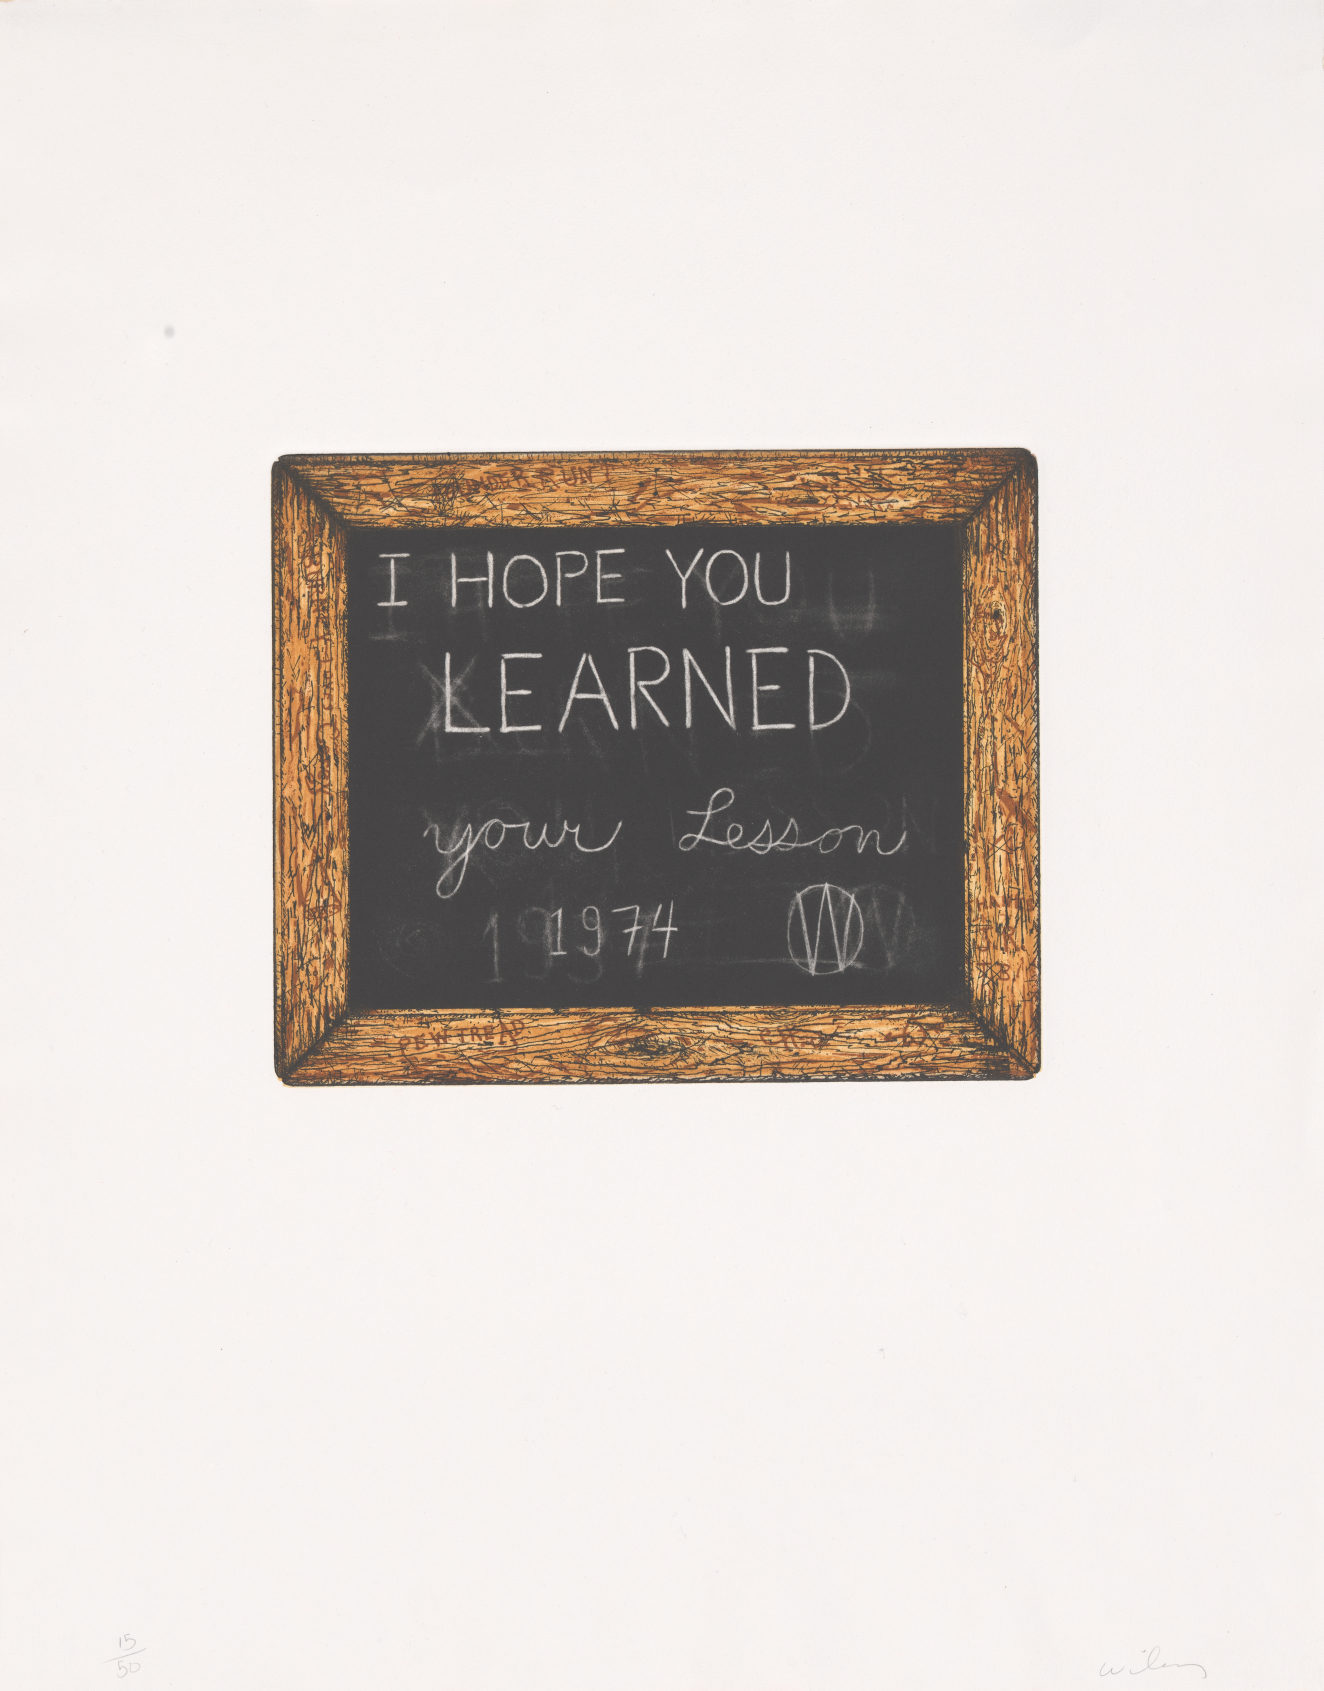 I HOPE YOU
LEARNED
your Lesson
1974 W
15/50
Wiley